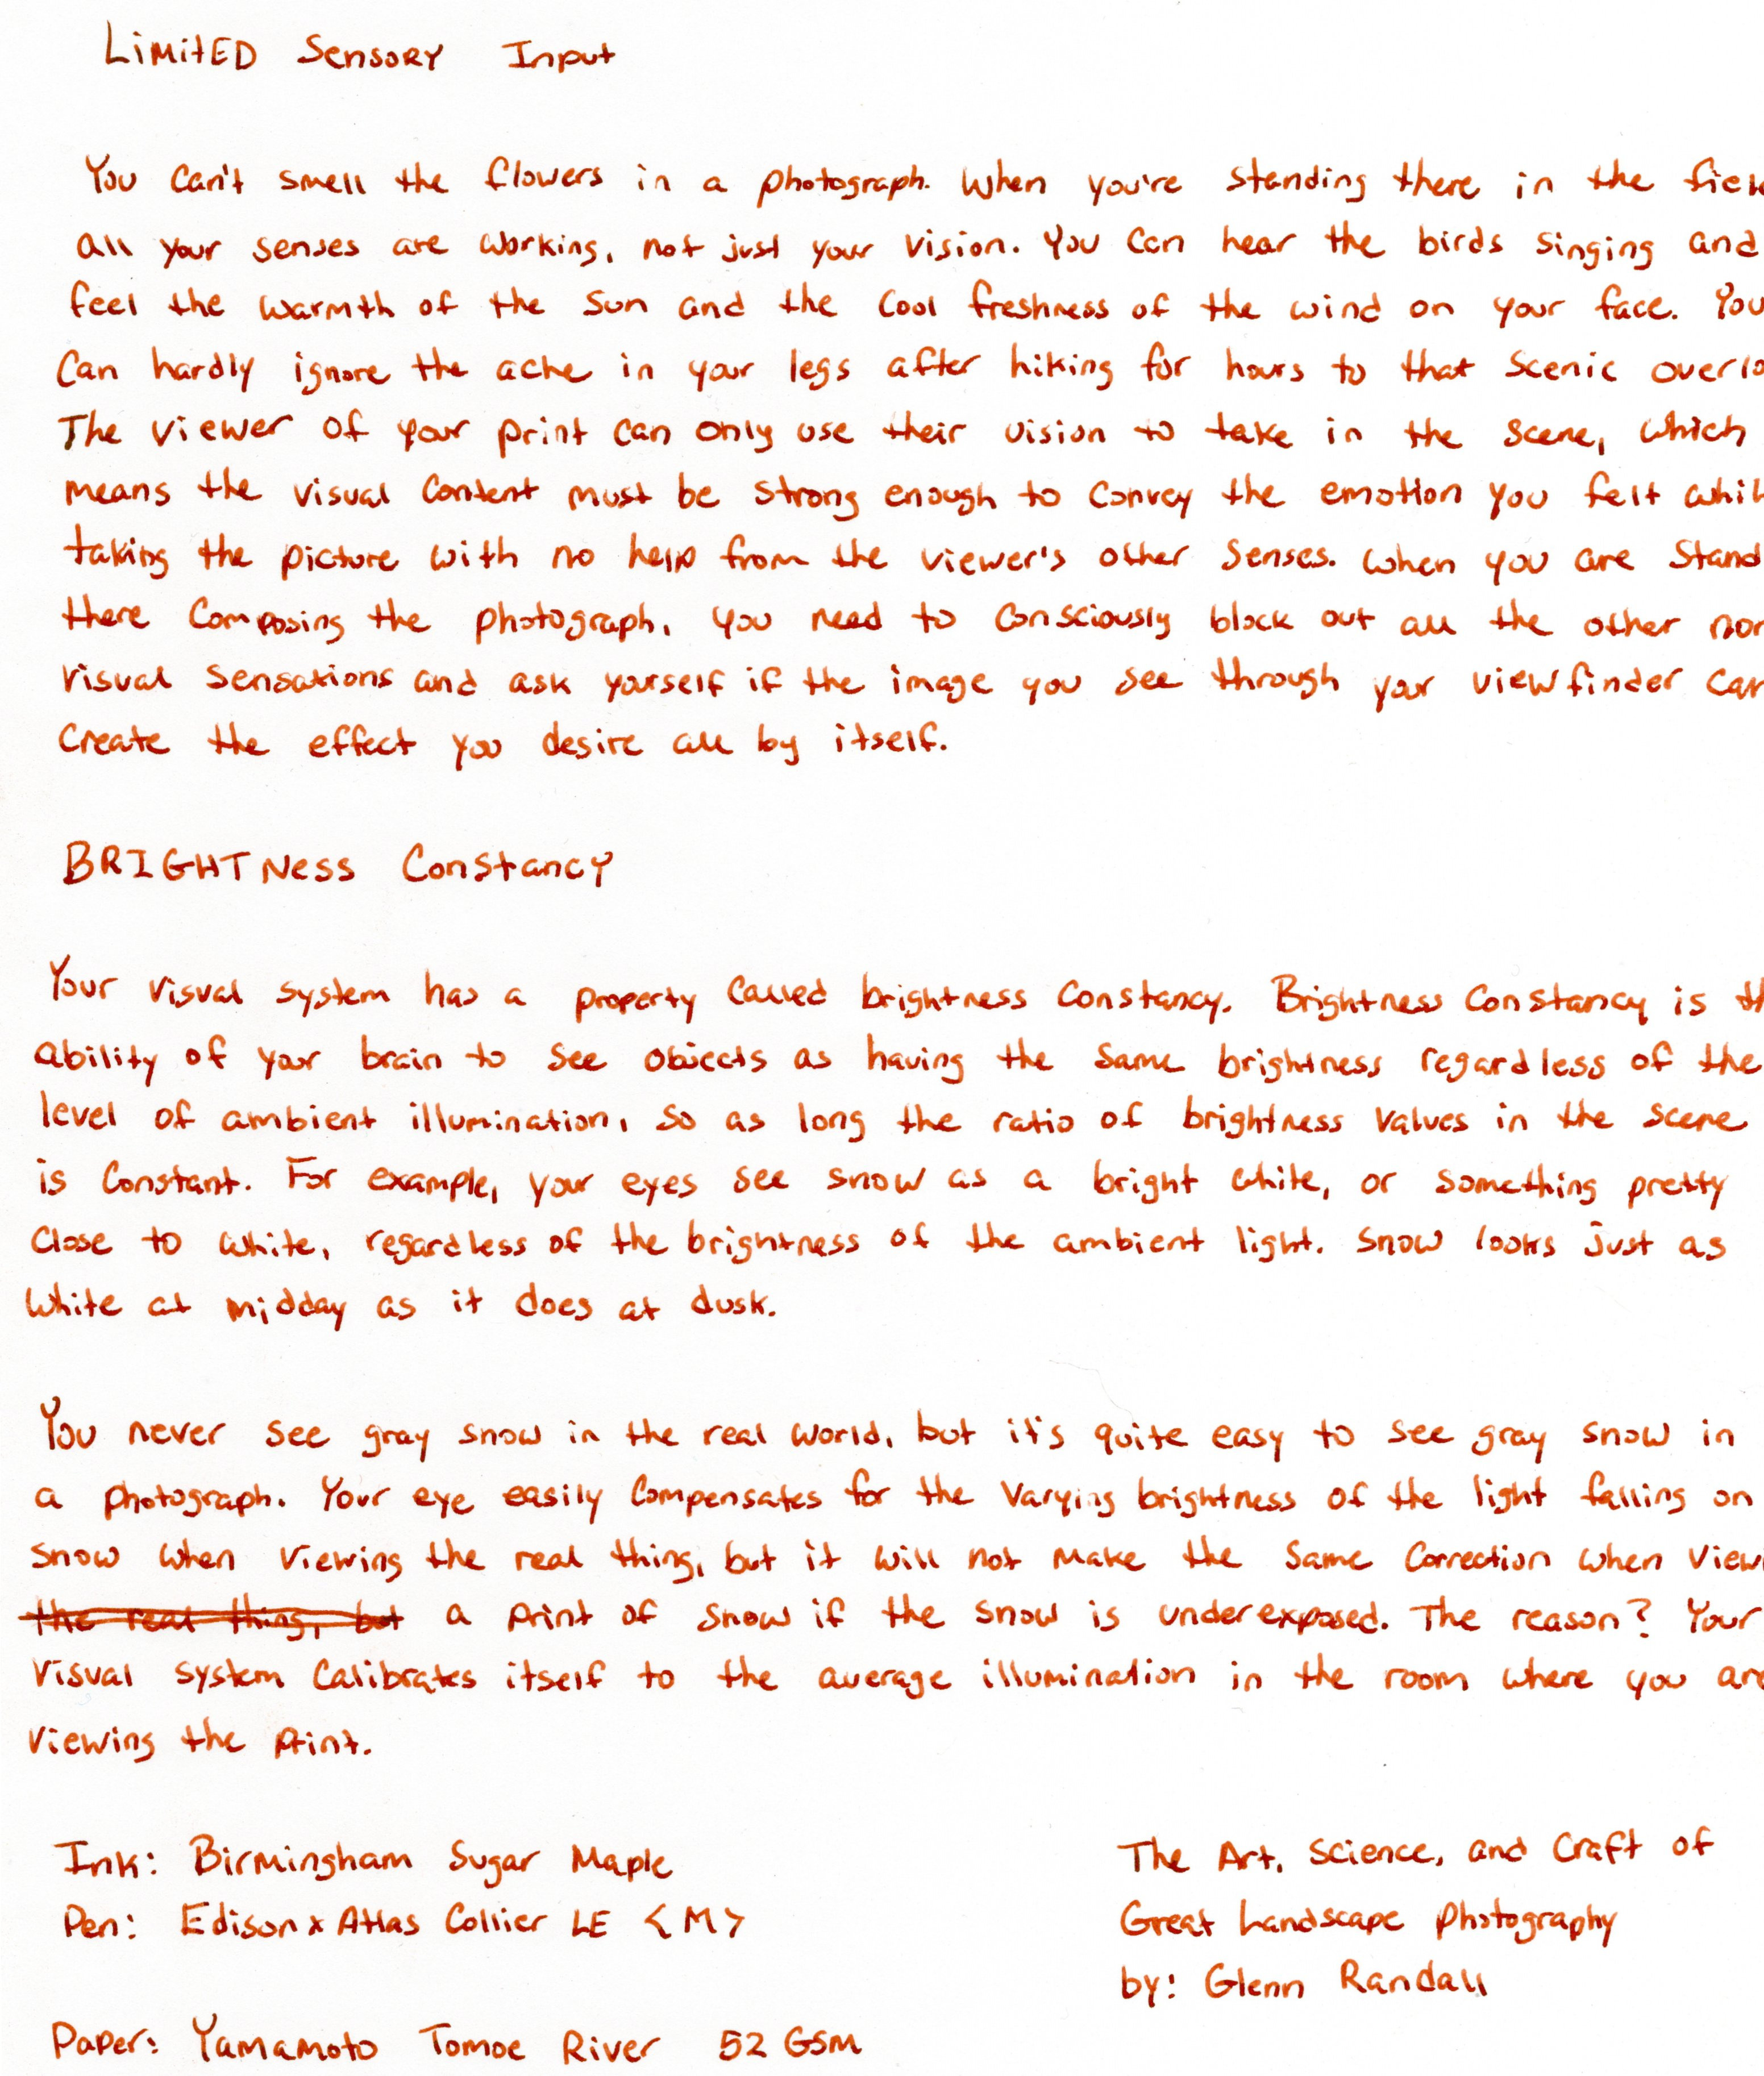 Limited Sensory Input
You can't smell the flowers in a photograph. When you're standing there in the fiel
all your senses are working, not just your vision. You can hear the birds singing and
feel the warmth of the sun and the cool freshness of the wind on your face. You
can hardly ignore the ache in your legs after hiking for hours to that scenic overlo
The viewer of your print can only use their vision to take in the scene, which
means the visual content must be strong enough to convey the emotion you felt whil
taking the picture with no help from the viewer's other senses. When you are stand
there composing the photograph, you need to consciously block out all the other non
visual sensations and ask yourself if the image you see through your viewfinder can
create the effect you desire all by itself.
BRIGHTNess Constancy
Your visual system has a property called brightness constancy. Brightness constancy is th
ability of your brain to see objects as having the same brightness regardless of the
level of ambient illumination, so as long the ratio of brightness values in the scene
is constant. For example, your eyes see snow as a bright white, or something pretty
close to white, regardless of the brightness of the ambient light. Snow looks just as
white at midday as it does at dusk.
You never see gray snow in the real world, but it's quite easy to see gray snow in
a photograph. Your eye easily compensates for the varying brightness of the light falling on
snow when viewing the real thing, but it will not make the same correction when view
the real thing, but a print of snow if the snow is underexposed. The reason? Your
visual system calibrates itself to the average illumination in the room where you are
viewing the print.
Ink: Birmingham Sugar Maple
Pen: Edison x Atlas Collier LE <M>
Paper: Yamamoto Tomoe River 52 GSM
The Art, Science, and Craft of
Great Landscape Photography
by: Glenn Randall